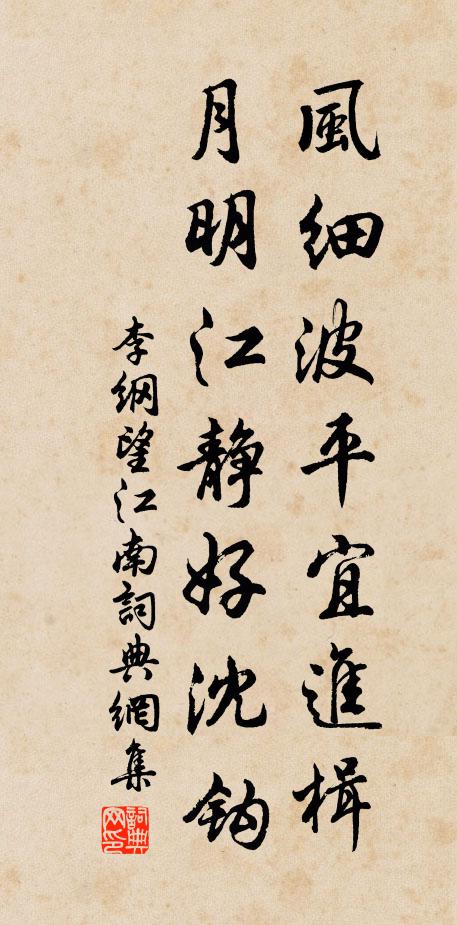 風細波平宜進楫
月明江静好沈鈎
李綱望江南詞典網集
詞典
网印